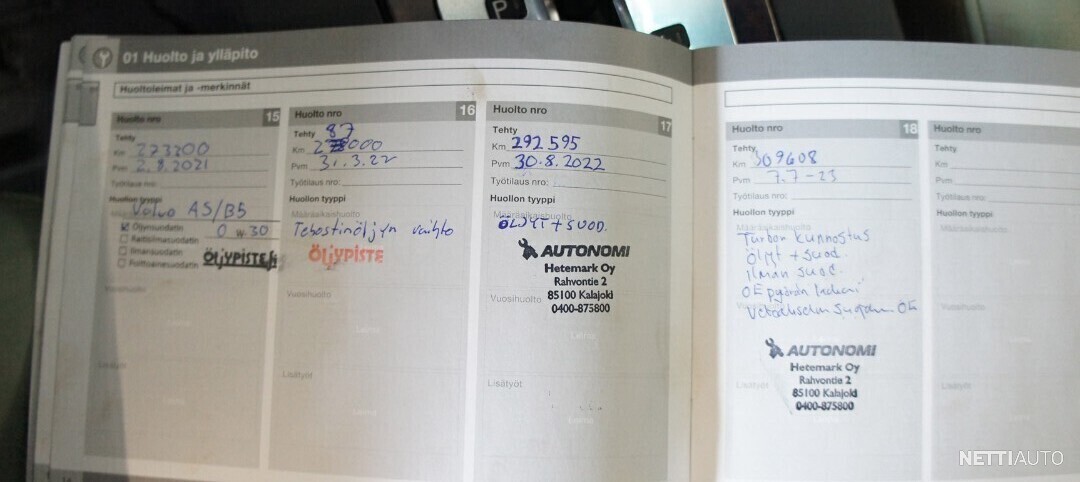 P
01 Huolto ja ylläpito
Huoltoleimat ja -merkinnät
Huolto nro 15
Tehty
Km 273200
Pvm 2.8.2021
Työtilaus nro:
Huollon tyyppi
Volvo A5/B5
Öljynsuodatin 0 W 30
Raitisilmasuodatin
Ilmansuodatin
Polttoainesuodatin
ÖLJYPISTE
Vuosihuolto
Lisätyöt
Huolto nro 16
Tehty 87
Km 000
Pvm 31.3.22
Työtilaus nro:
Huollon tyyppi
Määräaikaishuolto
Tehostinöljyn vaihto
ÖLJYPISTE
Vuosihuolto
Lisätyöt
Huolto nro 17
Tehty
Km 292 595
Pvm 30.8.2022
Työtilaus nro:
Huollon tyyppi
Määräaikaishuolto
ÖLJYT + SUOD.
AUTONOMI
Hetemark Oy
Rahvontie 2
85100 Kalajoki
0400-875800
Vuosihuolto
Lisätyöt
Huolto nro 18
Tehty
Km 309608
Pvm 7.7-23
Työtilaus nro:
Huollon tyyppi
Määräaikaishuolto
Turbon kunnostus
Öljyt + suod.
ilman suod.
OE pyörän
OE
AUTONOMI
Hetemark Oy
Rahvontie 2
85100 Kalajoki
0400-875800
Lisätyöt
Huolto nro
Tehty
Km
Pvm
Työtilaus nro:
Huollon tyyppi
Määräaikaishuolto
Vuosihuolto
Lisätyöt
NETTIAUTO